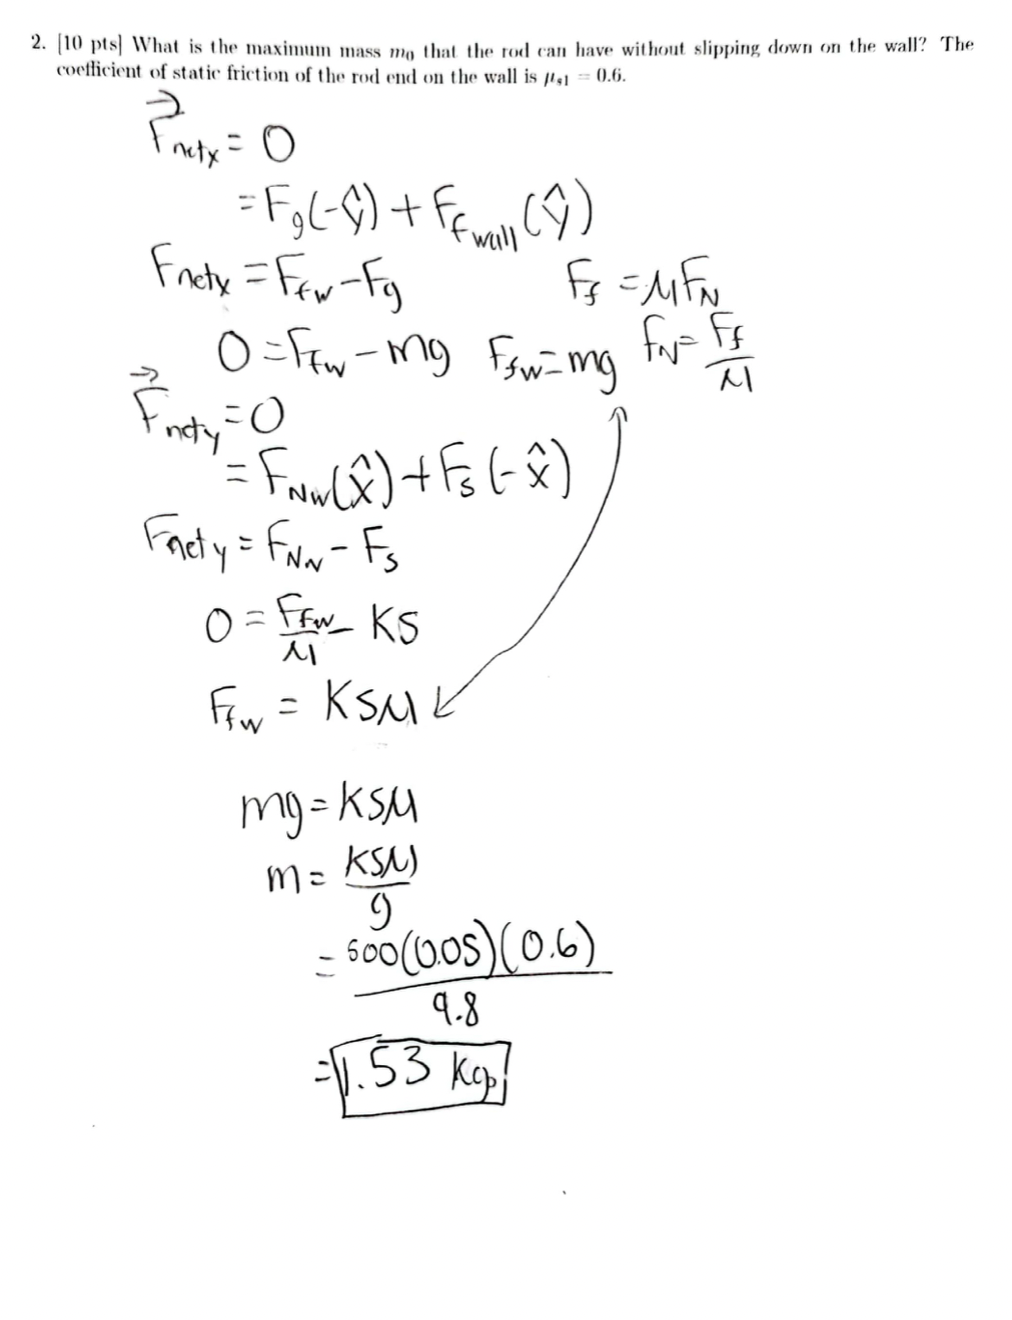 2. [10 pts] What is the maximum mass m₀ that the rod can have without slipping down on the wall? The
coefficient of static friction of the rod end on the wall is μₛ₁ = 0.6.
F⃗netx = 0
= Fg(-ŷ) + Ff wall (ŷ)
Fnetx = Ffw - Fg
Ff = μFN
0 = Ffw - mg Ffw = mg FN = Ff/μ
F⃗nety = 0
= FNw(x̂) + Fs(-x̂)
Fnety = FNw - Fs
0 = Ffw/μ - KS
Ffw = KSμ
mg = KSμ
m = KSμ/g
= 500(0.05)(0.6)/9.8
= 1.53 kg